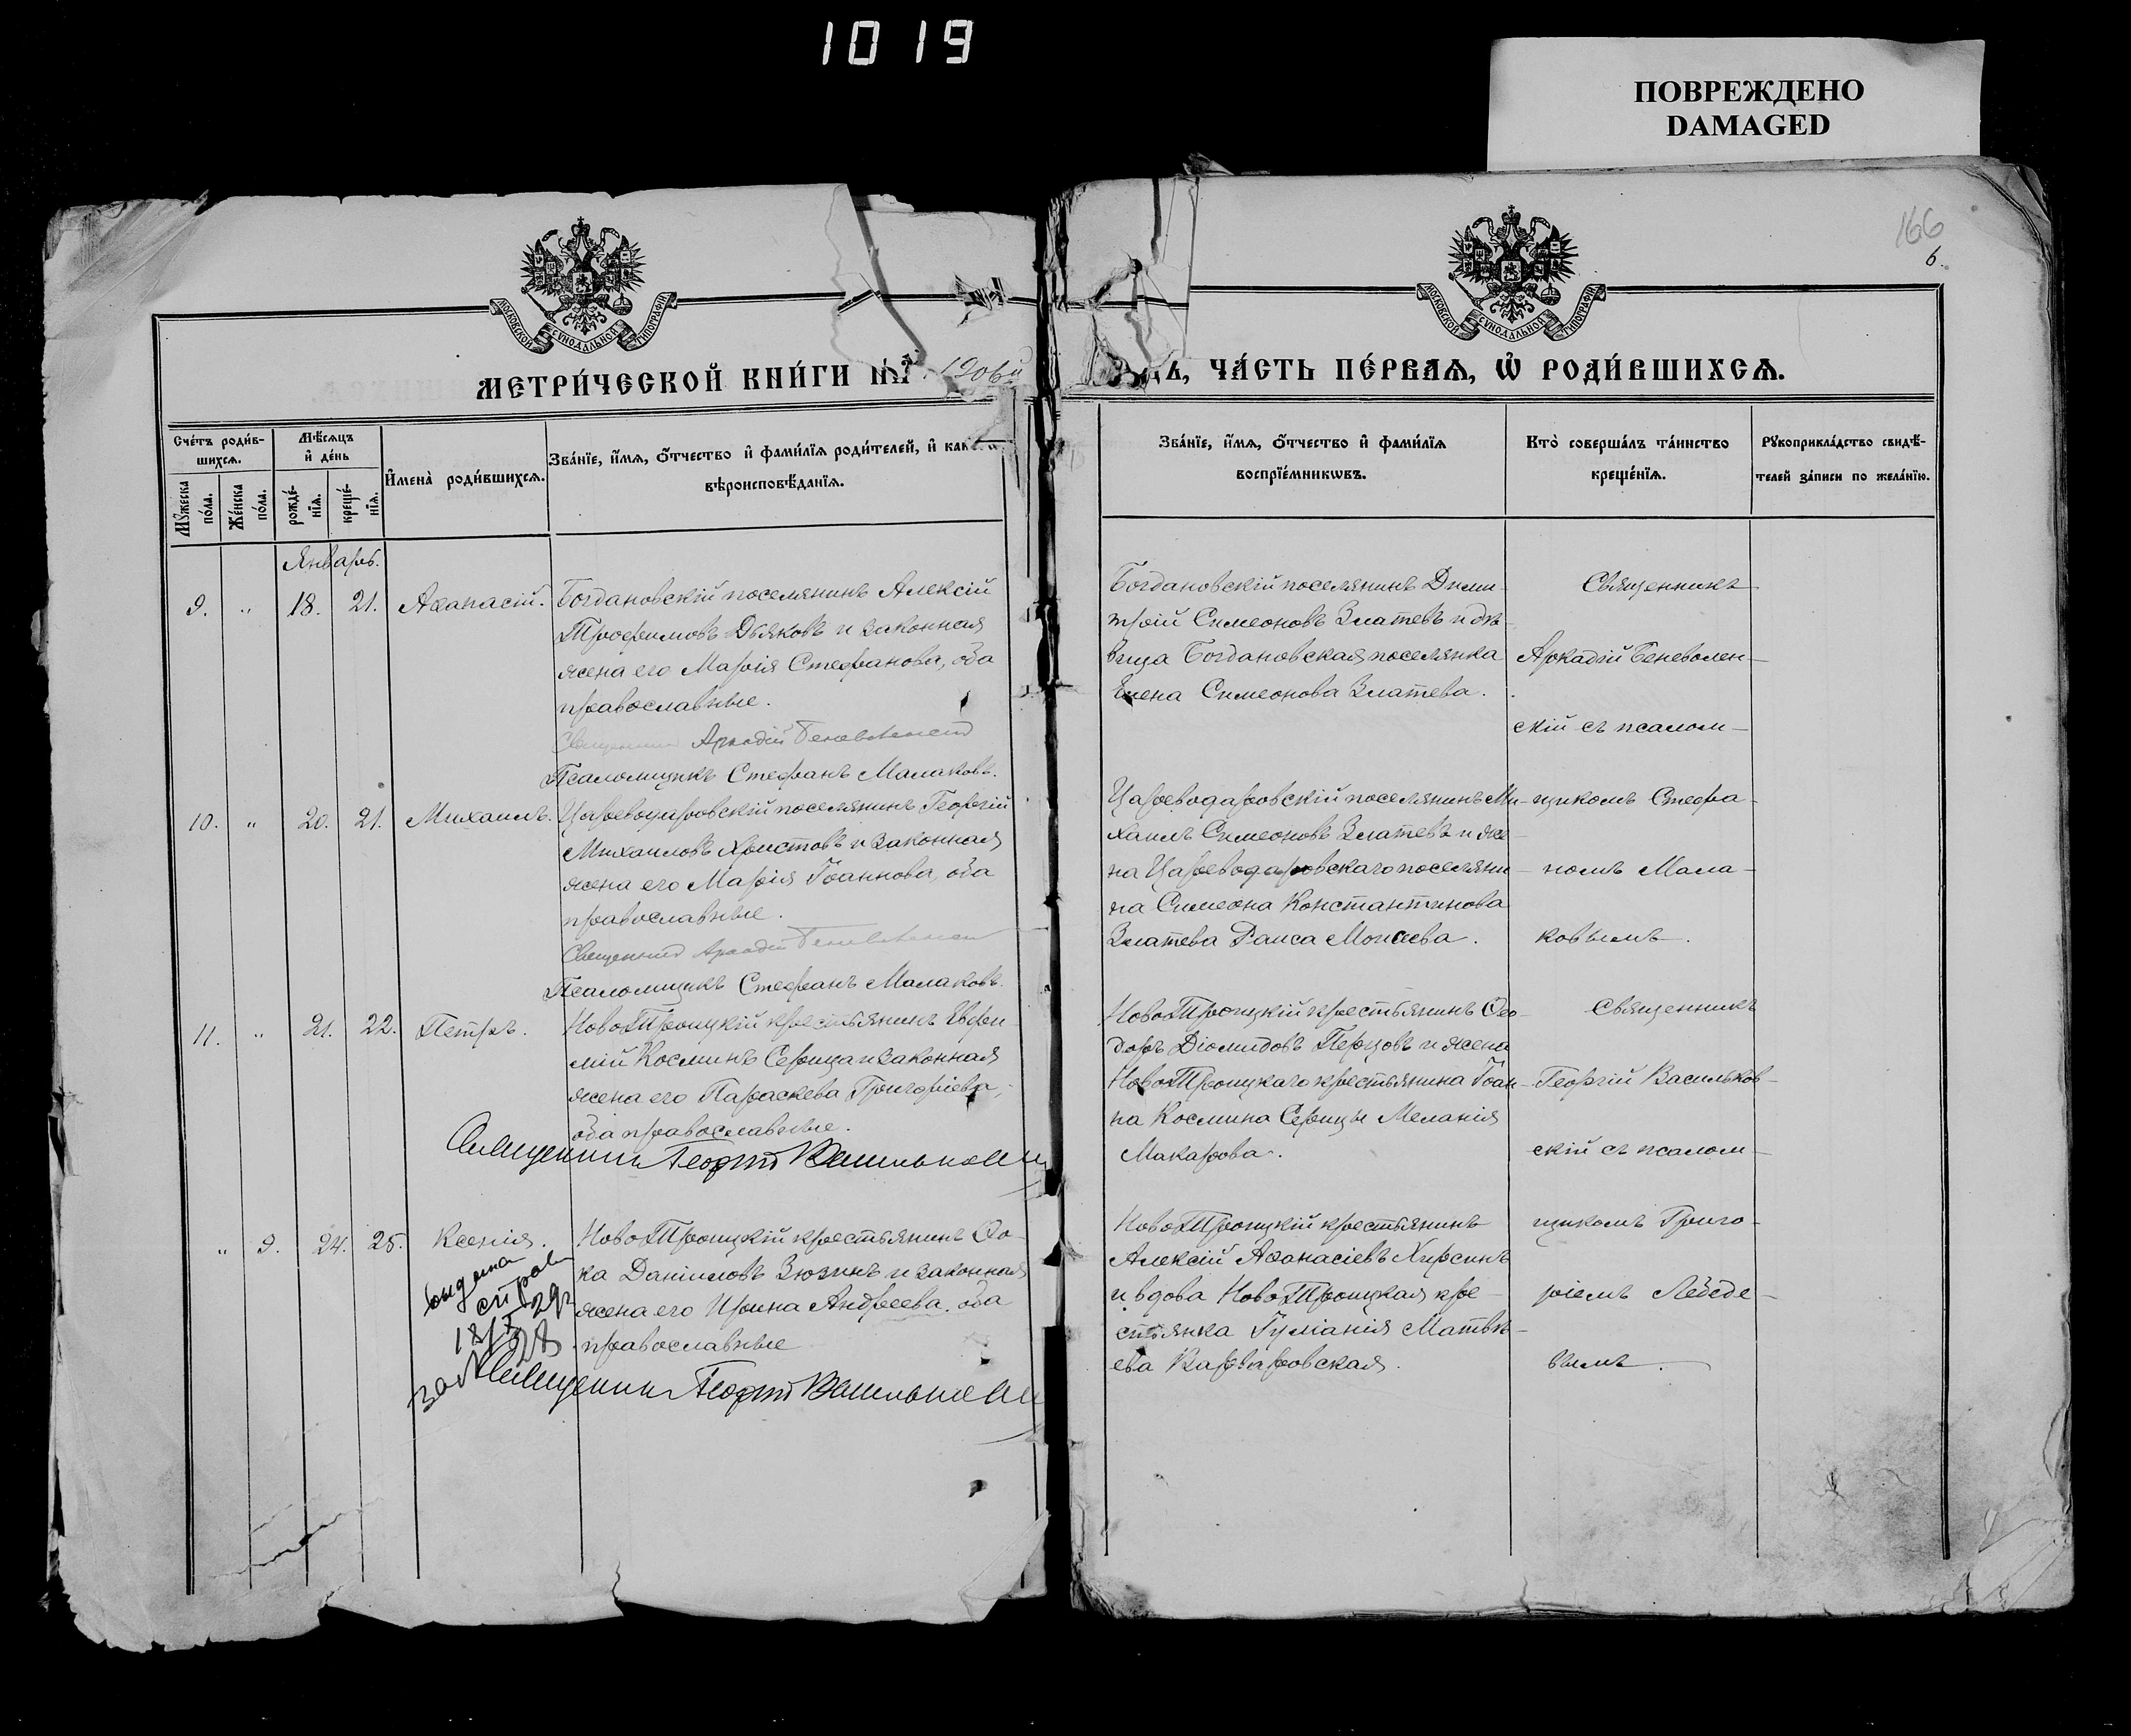 1019
ПОВРЕЖДЕНО
DAMAGED
166
6.
МОСКОВСКОЙ СѴНОДАЛЬНОЙ ТИПОГРАФІИ
МОСКОВСКОЙ СѴНОДАЛЬНОЙ ТИПОГРАФІИ
МЕТРИ́ЧЕСКОЙ КНИ́ГИ НА 1906й
ГОДЪ, ЧА́СТЬ ПЕ́РВАѦ, Ѡ РОДИ́ВШИХСѦ.
Сче́тъ роди́в-
шихсѧ.
Мѣ́сѧцъ
и де́нь
Мꙋ́жеска
по́ла.
Же́нска
по́ла.
рожде́-
нїѧ.
креще́-
нїѧ.
Имена̀ роди́вшихсѧ.
Зва́нїе, и́мѧ, о́тчество и фами́лїѧ роди́телей, и како́гѡ
вѣроисповѣ́данїѧ.
Зва́нїе, и́мѧ, о́тчество и фами́лїѧ
воспрїе́мникѡвъ.
Кто̀ соверша́лъ та́инство
креще́нїѧ.
Рꙋкоприкла́дство свидѣ́-
телей за́писи по жела́нїю.
Январь.
9. „ 18. 21. Аѳанасій.
Богдановскій поселянинъ Алексій
Трофимовъ Дьяковъ и законная
жена его Марія Стефанова, оба
православные.
Священникъ Аркадій Беневоленскій
Псаломщикъ Стефанъ Малаковъ.
Богдановскій поселянинъ Дими-
трій Симеоновъ Златевъ и дѣ-
вица Богдановская поселянка
Елена Симеонова Златева.
Священникъ
Аркадій Беневолен-
скій съ псалом-
10. „ 20. 21. Михаилъ.
Царевода­ровскій поселянинъ Георгій
Михаиловъ Христовъ и законная
жена его Марія Іоаннова, оба
православные.
Священникъ Аркадій Беневоленскій
Псаломщикъ Стефанъ Малаковъ.
Цареводаровскій поселянинъ Ми-
хаилъ Симеоновъ Златевъ и же-
на Цареводаровскаго поселяни-
на Симеона Константинова
Златева Раиса Моисеева.
щикомъ Стефа-
номъ Мала-
ковымъ.
11. „ 21. 22. Петръ.
НовоТроицкій крестьянинъ Евфи-
мій Косминъ Серица и законная
жена его Параскева Григоріева,
оба православные.
Священникъ Георгій Васильковскій
НовоТроицкій крестьянинъ Ѳео-
доръ Діомидовъ Перцовъ и жена
НовоТроицкаго крестьянина Іоан-
на Космина Серицы Меланія
Макарова.
Священникъ
Георгій Васильков-
скій съ псалом-
„ 9. 24. 25. Ксенія.
выдана
справ
НовоТроицкій крестьянинъ Ѳо-
ка Даніиловъ Зюзинъ и законная
жена его Ирина Андреева, оба
православные
Священникъ Георгій Васильковскій
НовоТроицкій крестьянинъ
Алексій Аѳанасіевъ Хирсинъ
и вдова НовоТроицкая кре-
стьянка Гуліанія Матвѣ-
ева Варваровская.
щикомъ Григо-
ріемъ Лебеде-
вымъ.